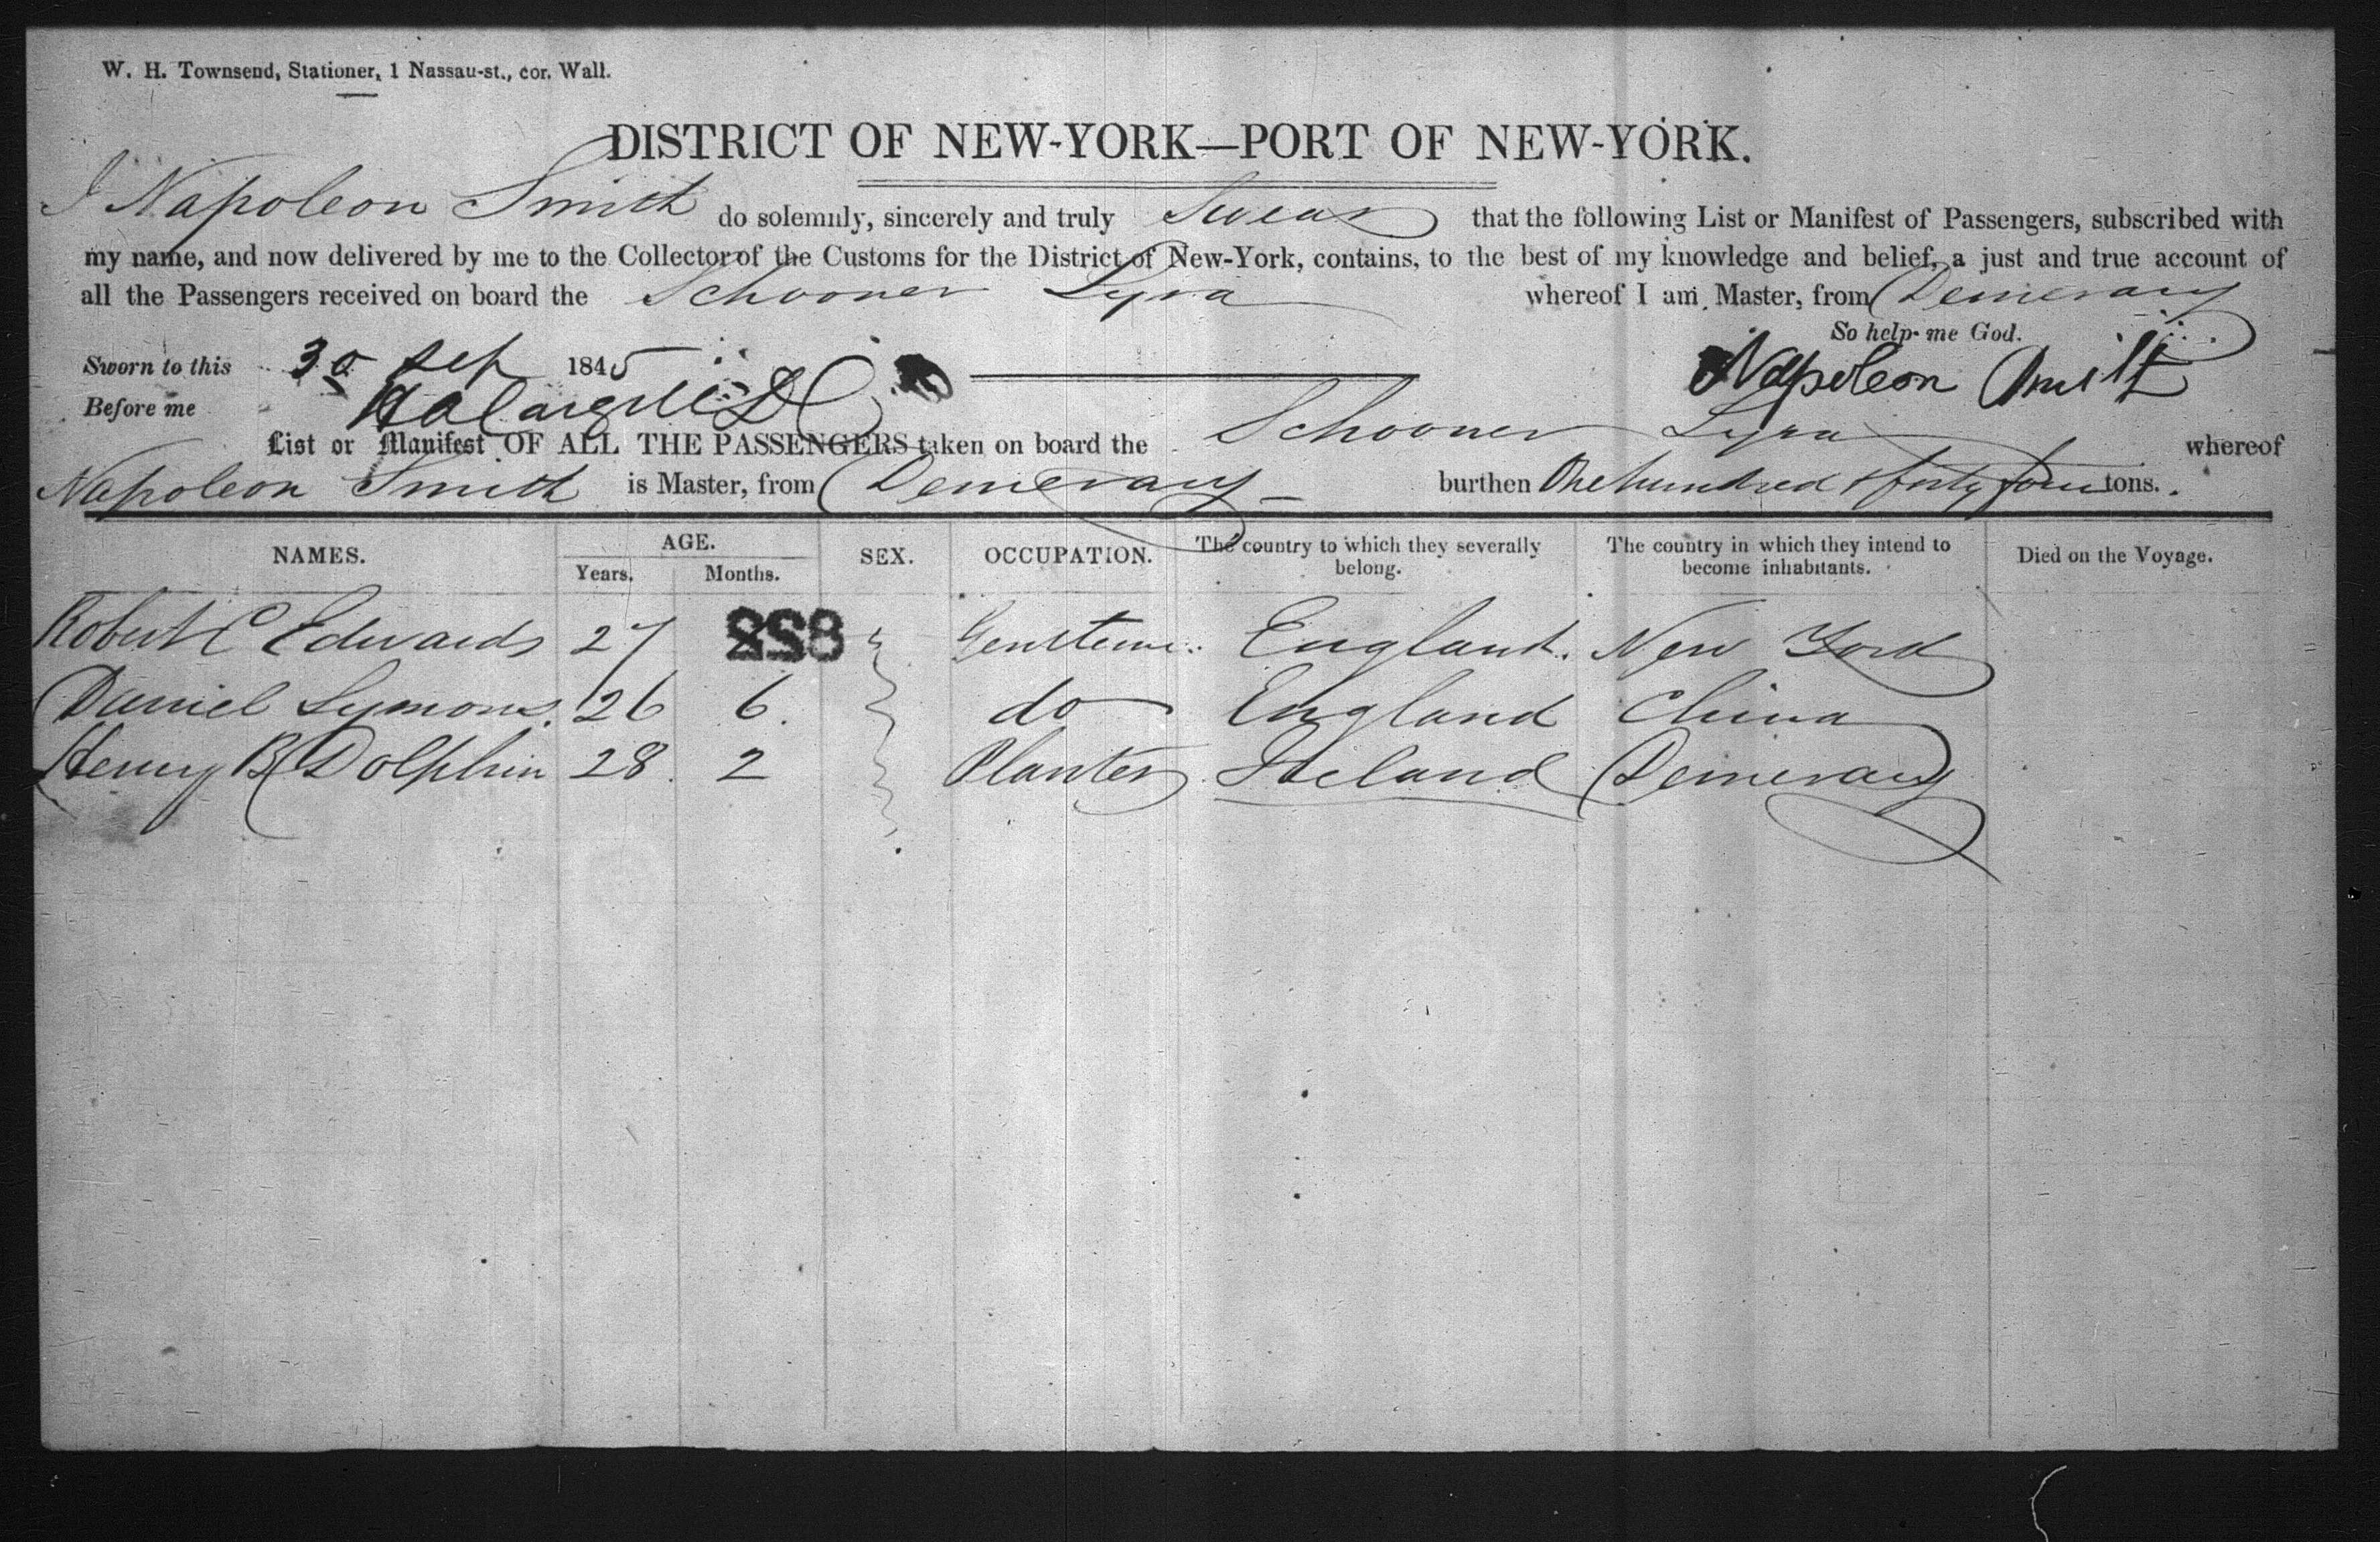 W. H. Townsend, Stationer, 1 Nassau-st., cor. Wall.
DISTRICT OF NEW-YORK—PORT OF NEW-YORK.
I Napoleon Smith do solemnly, sincerely and truly Swear that the following List or Manifest of Passengers, subscribed with
my name, and now delivered by me to the Collector of the Customs for the District of New-York, contains, to the best of my knowledge and belief, a just and true account of
all the Passengers received on board the Schooner Lyra whereof I am Master, from Demerary
So help me God.
Sworn to this 30 Sep 1845 Napoleon Smith
Before me
List or Manifest OF ALL THE PASSENGERS taken on board the Schooner Lyra whereof
Napoleon Smith is Master, from Demerary burthen One hundred & forty four tons.
NAMES. AGE. SEX. OCCUPATION. The country to which they severally belong. The country in which they intend to become inhabitants. Died on the Voyage.
Years. Months.
Robert C Edwards 27 828 England. New York
Daniel Symons. 26 6. do England China
Henry B Dolphin 28. 2 Planter Ireland Demerary